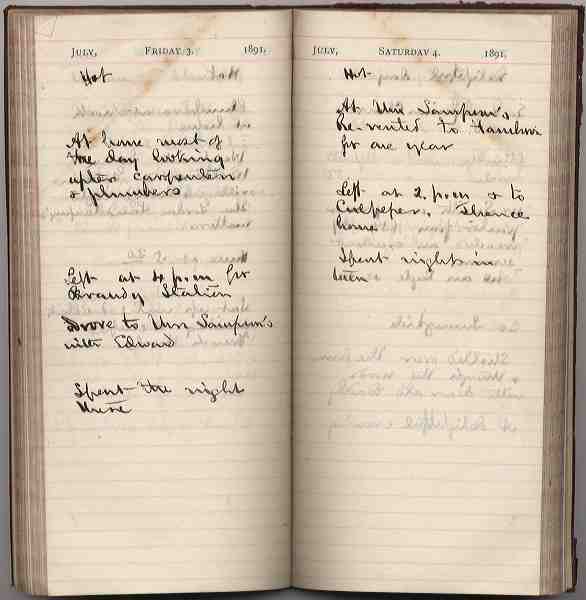 JULY, FRIDAY 3. 1891.
Hot
At home most of
the day looking
after carpenters
& plumbers
Left at 4 p.m for
Brandy Station
Drove to Mrs Sampson's
with Edward
Spent the night
there
JULY, SATURDAY 4. 1891.
Hot
At Mrs. Sampson's
Re-rented to
for one year
Left at 2. p.m & to
Culpeper. Thence
home
Spent night in
town